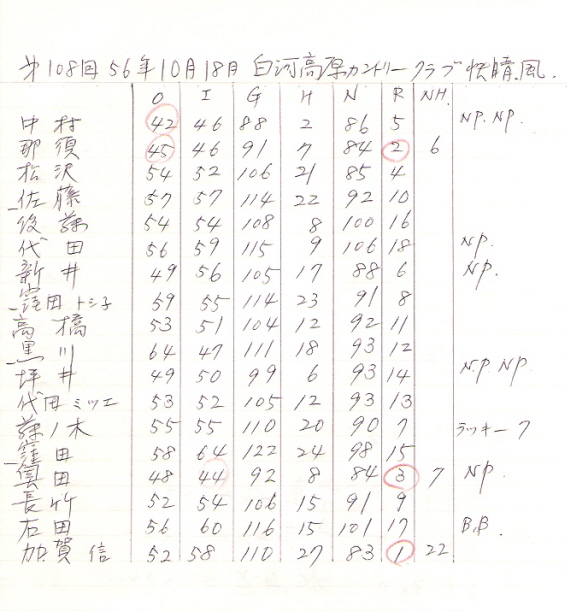 第108回 56年10月18日 白河高原カントリークラブ 快晴.風.
O I G H N R NH.
中村 42 46 88 2 86 5 NP. NP.
那須 45 46 91 7 84 2 6
松沢 54 52 106 21 85 4
佐藤 57 57 114 22 92 10
後藤 54 54 108 8 100 16
代田 56 59 115 9 106 18 NP.
新井 49 56 105 17 88 6 NP.
窪田トシ子 59 55 114 23 91 8
高橋 53 51 104 12 92 11
黒川 64 47 111 18 93 12
坪井 49 50 99 6 93 14 N.P NP.
代田ミツエ 53 52 105 12 93 13
藤ノ木 55 55 110 20 90 7 ラッキー7
窪田 58 64 122 24 98 15
田 48 44 92 8 84 3 7 NP.
長竹 52 54 106 15 91 9
石田 56 60 116 15 101 17 B.B.
加賀信 52 58 110 27 83 1 22